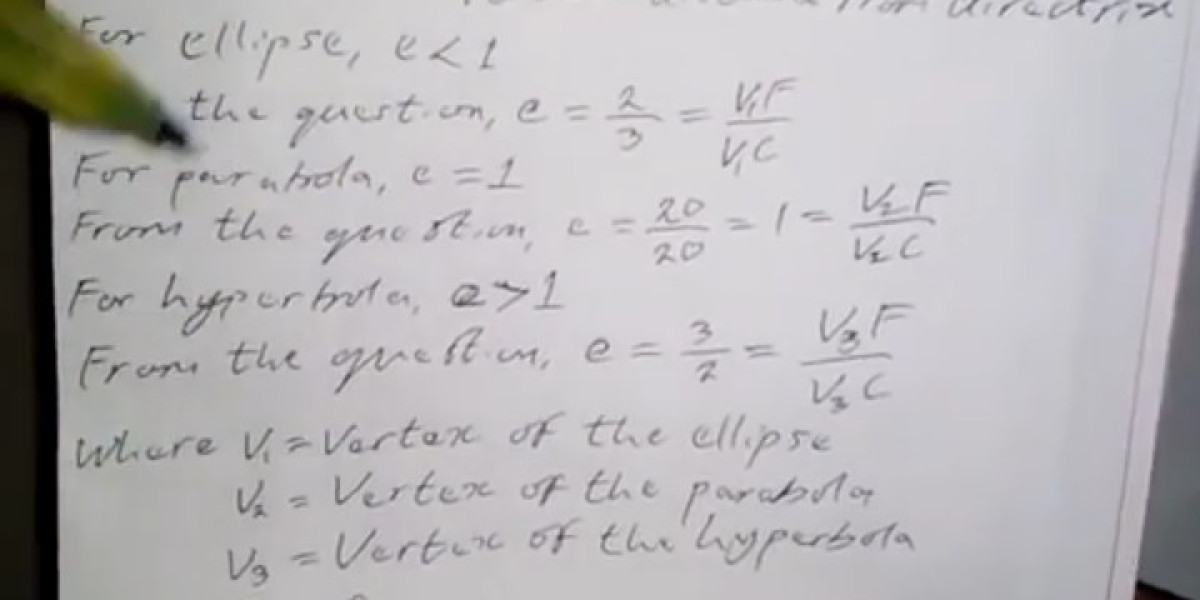 from directrix
For ellipse, e < 1
the question, e = 2/3 = V₁F/V₁C
For parabola, e = 1
From the question, e = 20/20 = 1 = V₂F/V₂C
For hyperbola, e > 1
From the question, e = 3/2 = V₃F/V₃C
Where V₁ = Vertex of the ellipse
V₂ = Vertex of the parabola
V₃ = Vertex of the hyperbola